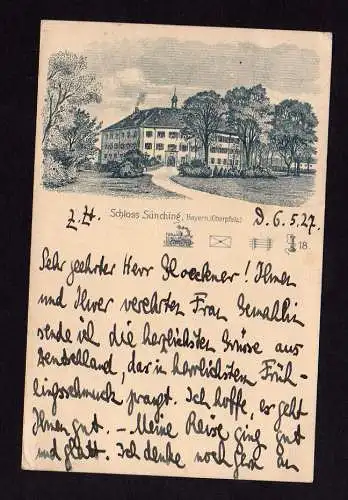 Schloss Sünching, Bayern (Oberpfalz)
z. Zt. D. 6.5.27.
18.
Sehr geehrter Herr Kloeckner! Ihnen
und Ihrer verehrten Frau Gemahlin
sende ich die herzlichsten Grüsse aus
Deutschland, das in herrlichstem Früh-
lingsschmuck prangt. Ich hoffe, es geht
Ihnen gut. – Meine Reise ging gut
und glatt. Ich denke noch gern an